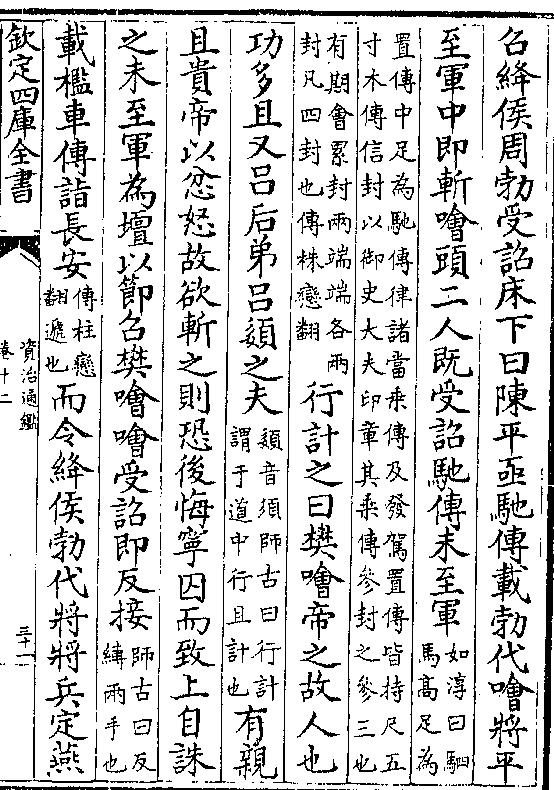 召絳侯周勃受詔床下曰陳平亟馳傳載勃代噲將平
至軍中即斬噲頭二人既受詔馳傳未至軍
如淳曰駟
馬髙足為
置傳中足為馳傳律諸當乘傳及發駕置傳皆持尺五
寸木傳信封以御史大夫印章其乘傳參封之參三也
有期會累封兩端端各兩
封凡四封也傳株戀翻
行計之曰樊噲帝之故人也
功多且又呂后弟呂嬃之夫
嬃音須師古曰行計
謂于道中行且計也
有親
且貴帝以忿怒故欲斬之則恐後悔寧囚而致上自誅
之未至軍為壇以節召樊噲噲受詔即反接
師古曰反
縛兩手也
載檻車傳詣長安
傳柱戀
翻遞也
而令絳侯勃代將將兵定燕
欽定四庫全書
資治通鑑
卷十二
三十一